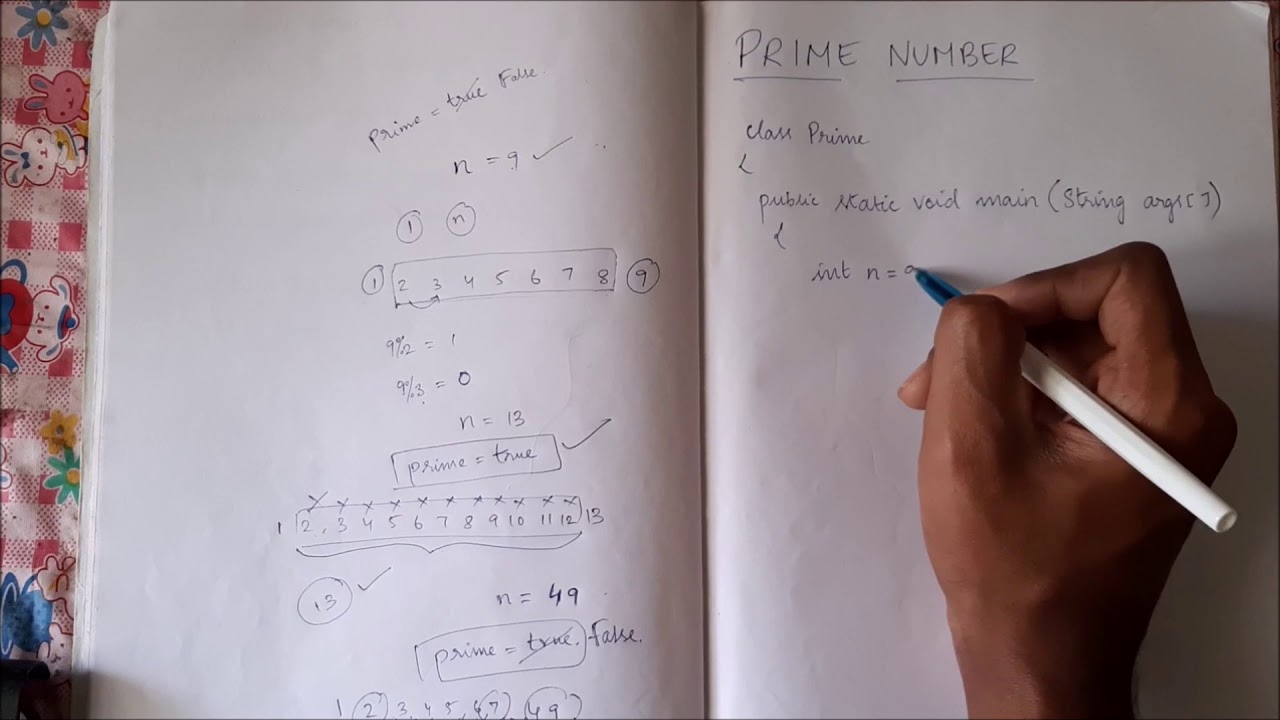 prime = true False.
n = 9
1 n
1 2 3 4 5 6 7 8 9
9%2 = 1
9%3 = 0
n = 13
prime = true
1 2, 3 4 5 6 7 8 9 10 11 12 13
13
n = 49
prime = true. False.
1 2 3, 4, 5, 6, 7, 49
PRIME NUMBER
class Prime
{
public static void main (String args[])
{
int n = 9